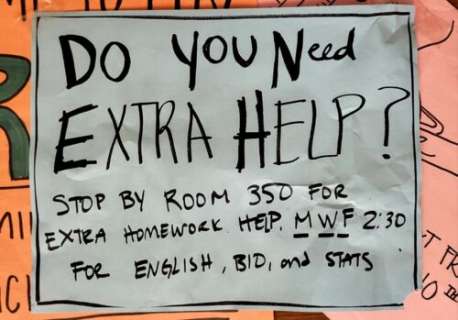 DO YOU Need
EXTRA HELP?
STOP BY ROOM 350 FOR
EXTRA HOMEWORK HELP. M W F 2:30
FOR ENGLISH, BIO, and STATS